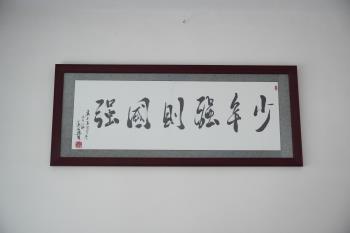 少年强则国强